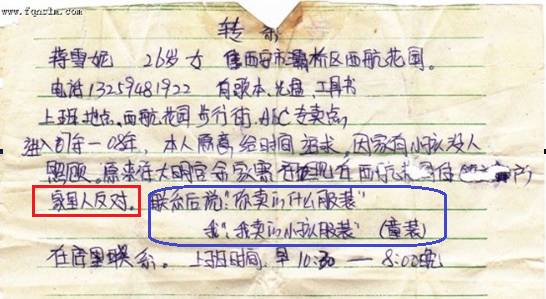 www.fqnrlm.com
转示
蒋雪妮 26岁 女 住西安市灞桥区西航花园。
电话13259481922 有歌本、光盘、工具书
上班地点、西航花园步行街、ABC专卖店,
进入时年一08年,本人愿意给时间追求,因家有小孩没人
照顾。原来在大明宫
家里人反对。联系后说:"你卖的什么服装"
我:"我卖的小孩服装"(童装)
在店里联系。上班时间、早10:30 — 8:00晚